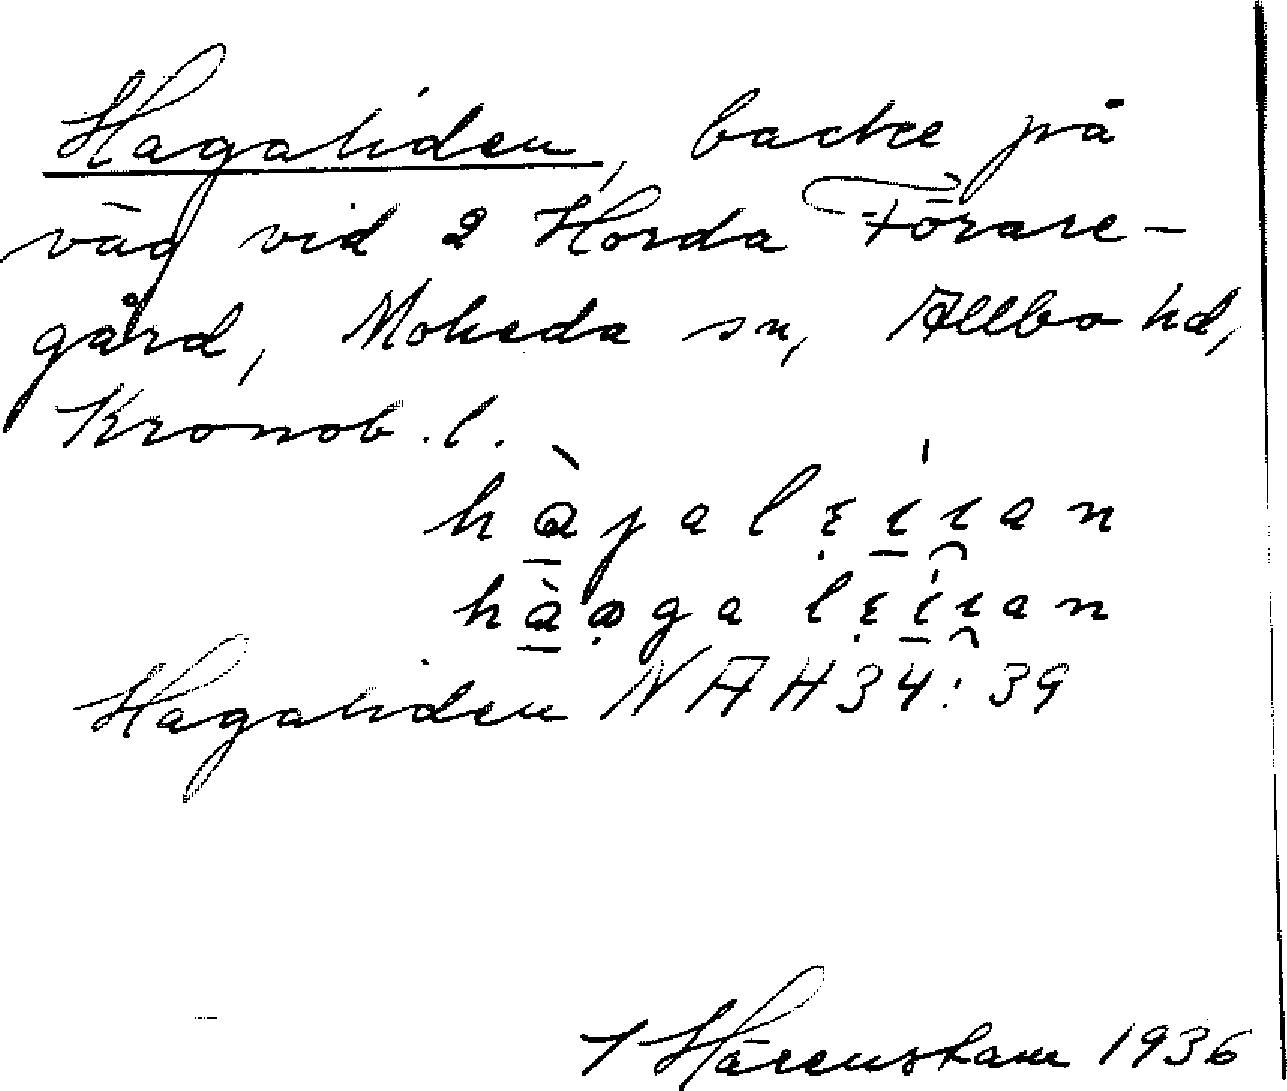 Hagaliden, backe på
väg vid 2 Horda Förare-
gård, Moheda sn, Allbo hd,
Kronob. l.
hàgalẹíian
hàọga lẹíian
Hagaliden NAH34:39
1936